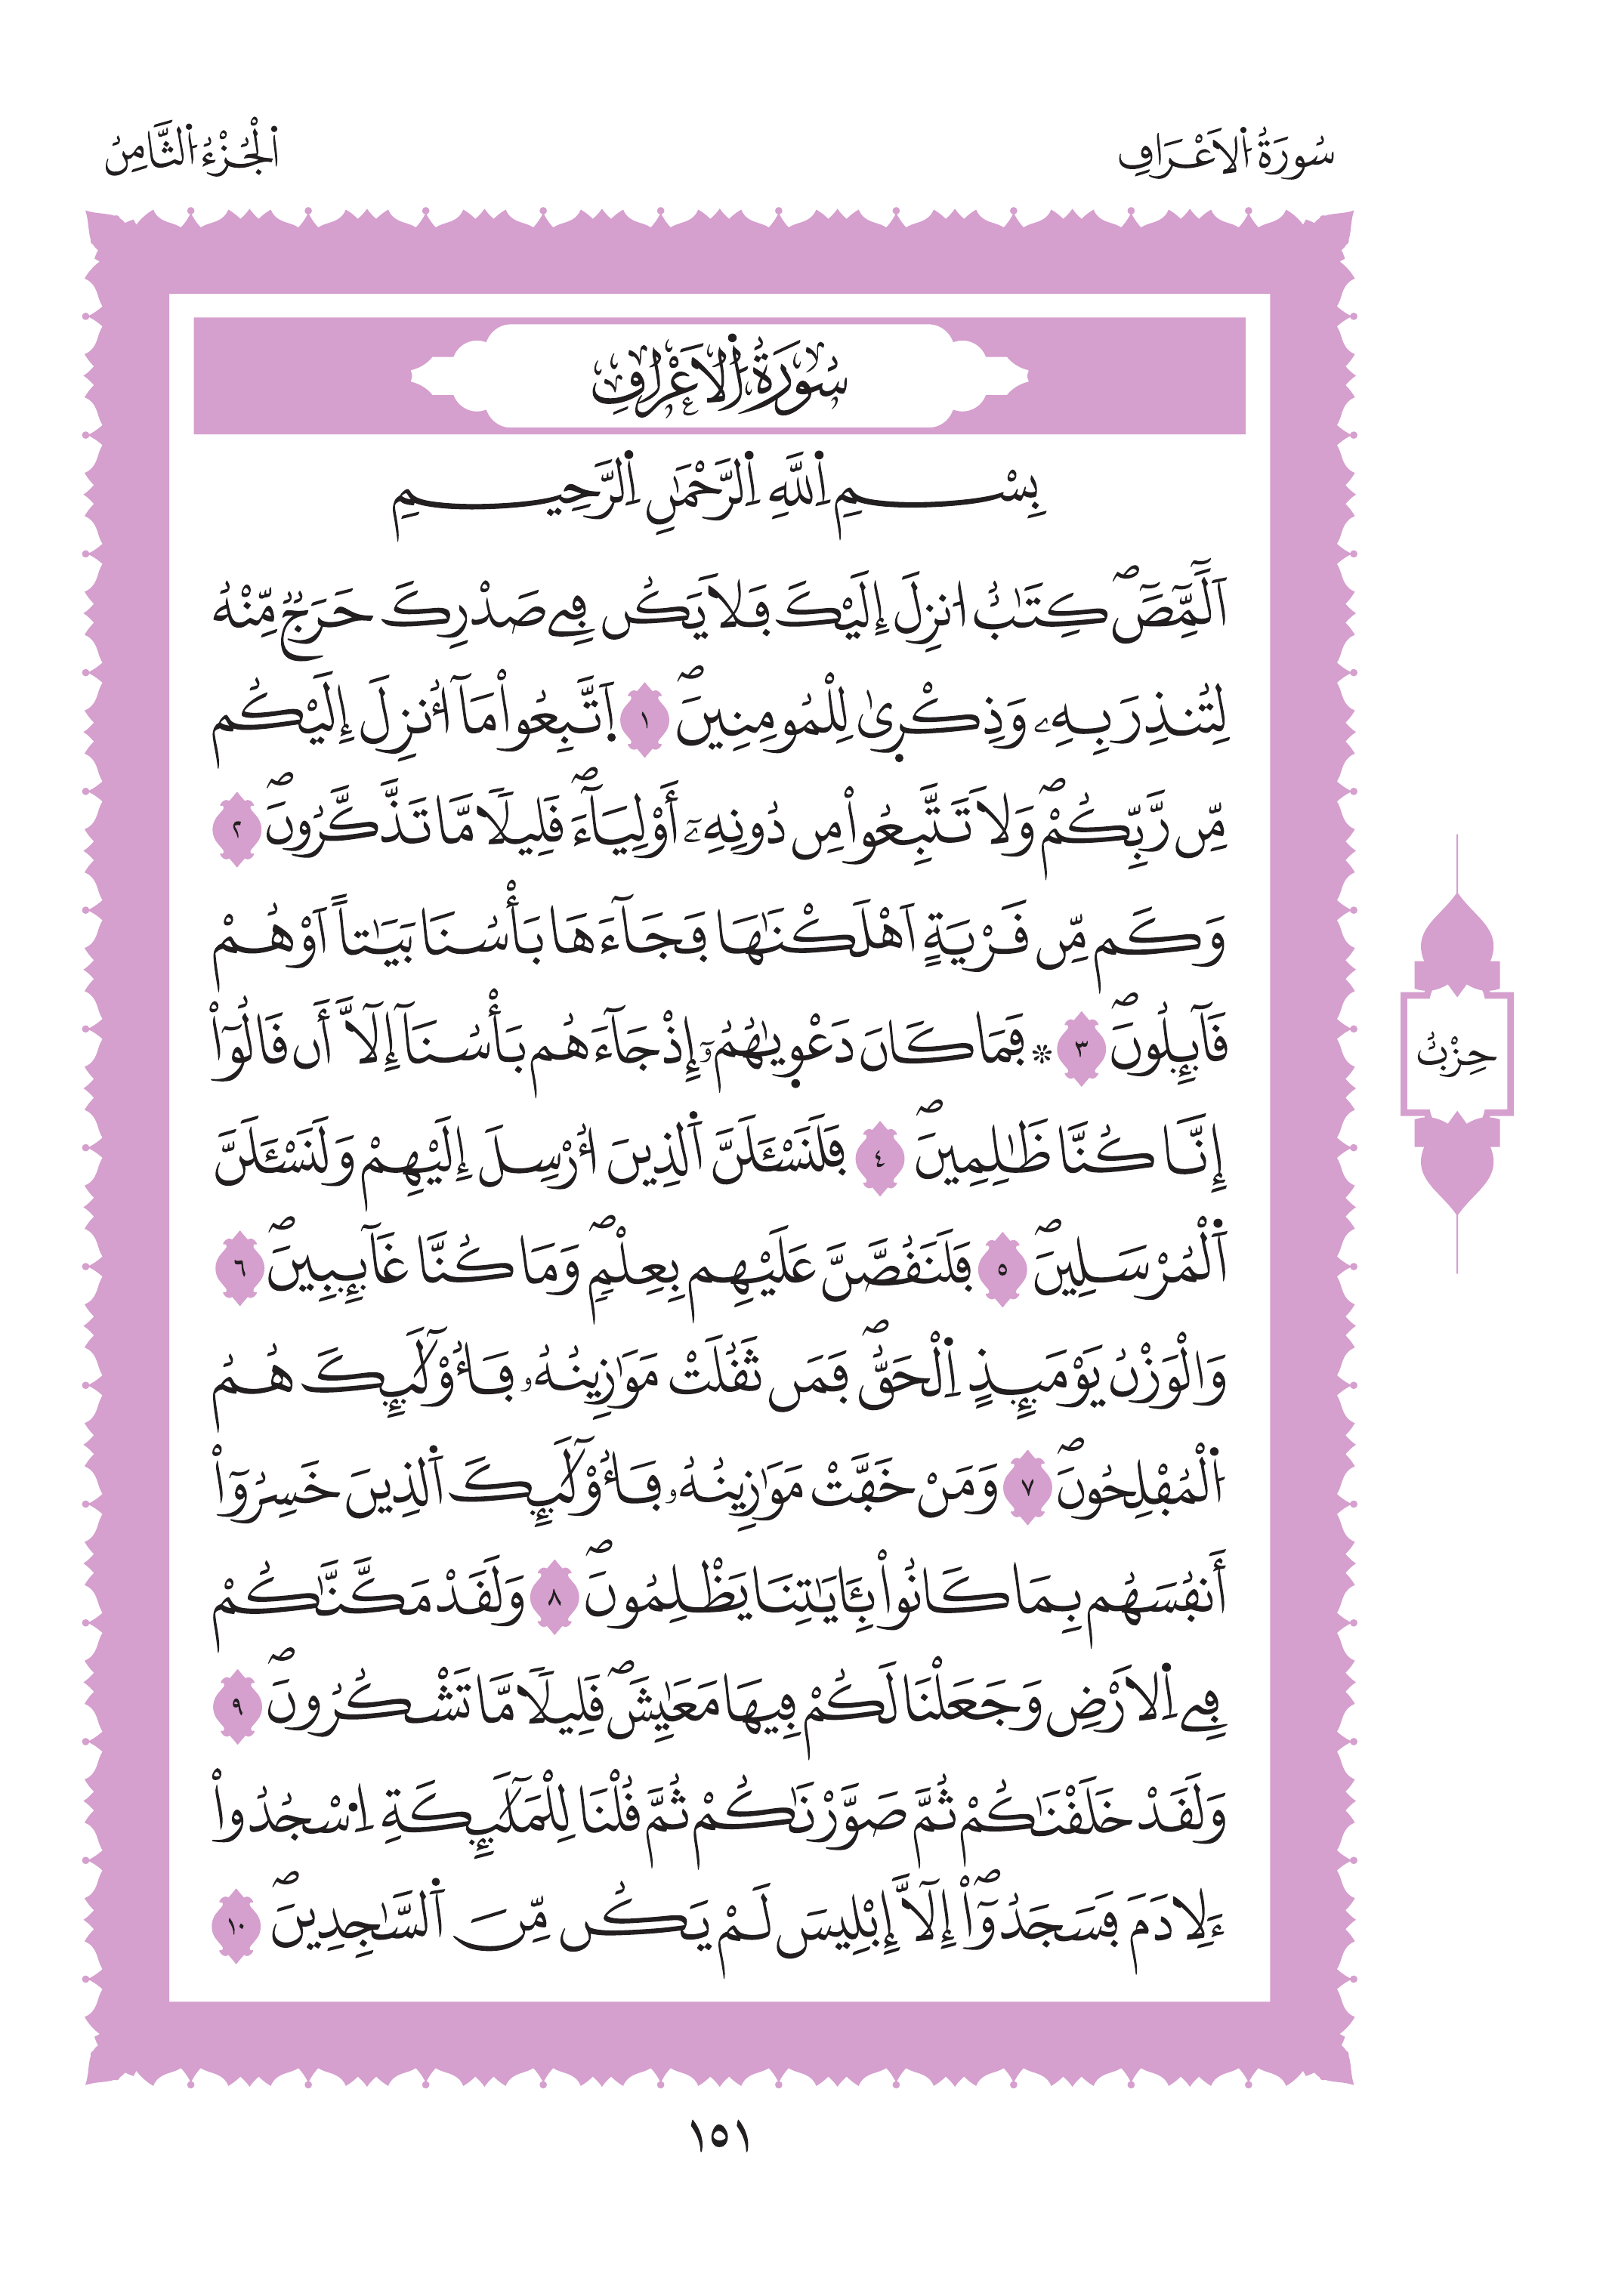 سُورَةُ اُ۬لَاعْرَافِ
اَ۬لْجُزْءُ اُ۬لثَّامِنُ
سُورَةُ اُ۬لَاعْرَافِ
بِسْمِ اِ۬للَّهِ اِ۬لرَّحْمَٰنِ اِ۬لرَّحِيمِ
أَلَٓمِّٓصَٓۖ كِتَٰبٌ ا۟نزِلَ إِلَيْكَ فَلَا يَكُن فِے صَدْرِكَ حَرَجٞ مِّنْهُ
لِتُنذِرَ بِهِۦ وَذِكْر۪ىٰ لِلْمُومِنِينَۖ ١ اَ۪تَّبِعُواْ مَآ أُنزِلَ إِلَيْكُم
مِّن رَّبِّكُمْۖ وَلَا تَتَّبِعُواْ مِن دُونِهِۦٓ أَوْلِيَآءَۖ قَلِيلاٗ مَّا تَذَّكَّرُونَۖ ٢
وَكَم مِّن قَرْيَةٍ اَهْلَكْنَٰهَا فَجَآءَهَا بَأْسُنَا بَيَٰتاً اَوْ هُمْ
قَآئِلُونَۖ ٣ ۞ فَمَا كَانَ دَعْو۪يٰهُمُۥٓ إِذْ جَآءَهُم بَأْسُنَآ إِلَّآ أَن قَالُوٓاْ
إِنَّا كُنَّا ظَٰلِمِينَۖ ٤ فَلَنَسْـَٔلَنَّ اَ۬لذِينَ أُرْسِلَ إِلَيْهِمْ وَلَنَسْـَٔلَنَّ
اَ۬لْمُرْسَلِينَۖ ٥ فَلَنَقُصَّنَّ عَلَيْهِم بِعِلْمٖۖ وَمَا كُنَّا غَآئِبِينَۖ ٦
وَالْوَزْنُ يَوْمَئِذٍ اِ۬لْحَقُّۖ فَمَن ثَقُلَتْ مَوَٰزِينُهُۥ فَأُوْلَٰٓئِكَ هُمُ
اُ۬لْمُفْلِحُونَۖ ٧ وَمَنْ خَفَّتْ مَوَٰزِينُهُۥ فَأُوْلَٰٓئِكَ اَ۬لذِينَ خَسِرُوٓاْ
أَنفُسَهُم بِمَا كَانُواْ بِـَٔايَٰتِنَا يَظْلِمُونَۖ ٨ وَلَقَدْ مَكَّنَّٰكُمْ
فِے اِ۬لَارْضِ وَجَعَلْنَا لَكُمْ فِيهَا مَعَٰيِشَۖ قَلِيلاٗ مَّا تَشْكُرُونَۖ ٩
وَلَقَدْ خَلَقْنَٰكُمْ ثُمَّ صَوَّرْنَٰكُمْ ثُمَّ قُلْنَا لِلْمَلَٰٓئِكَةِ اِ۟سْجُدُواْ
ءَلِادَمَ فَسَجَدُوٓاْۖ إِلَّآ إِبْلِيسَ لَمْ يَكُن مِّنَ اَ۬لسَّٰجِدِينَۖ ١٠
حِزْبٌ
١٥١